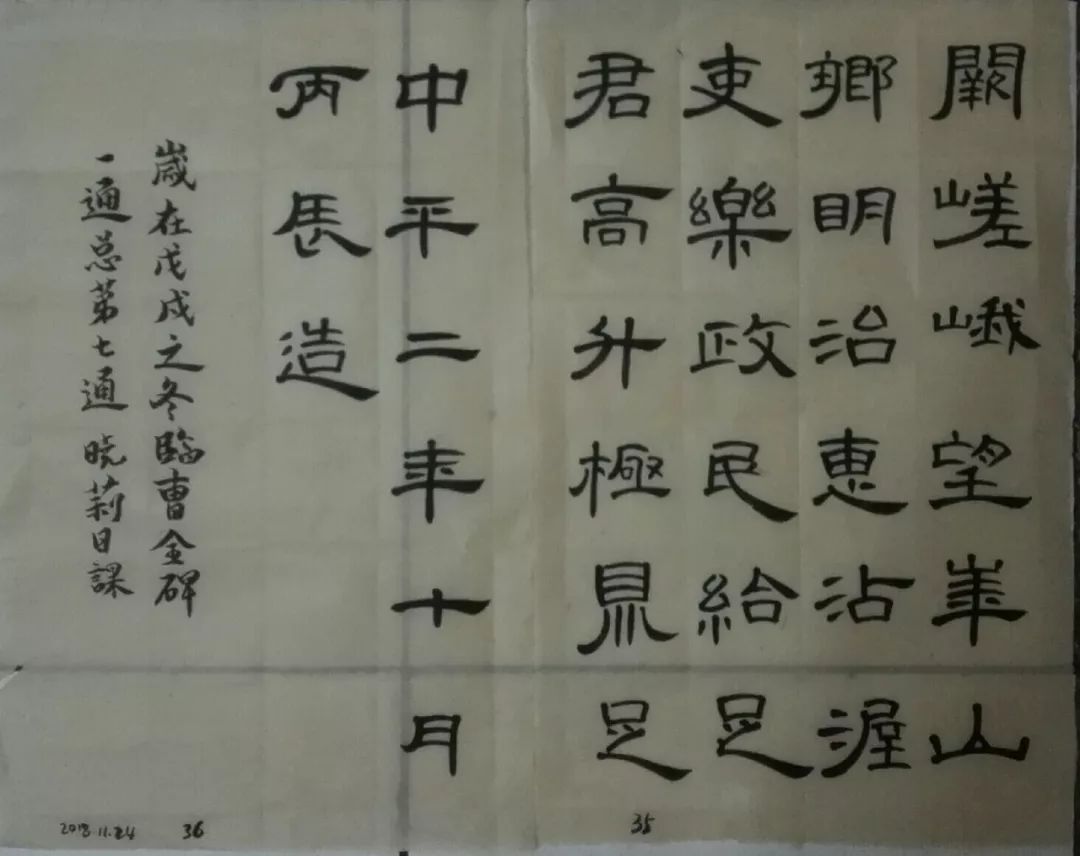 闕嵯峨望華山
鄉明治惠沾渥
吏樂政民給足
君高升極鼎足
35
中平二年十月
丙辰造
歲在戊戌之冬臨曹全碑
一通总第七通 晓莉日課
36
2018.11.24